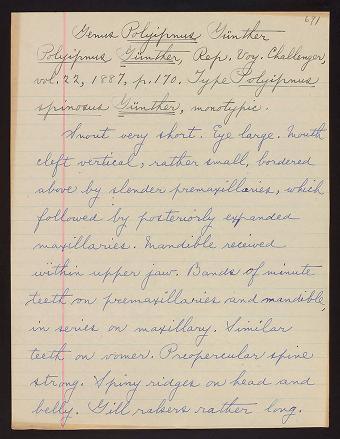 691
Genus Polyipnus Günther
Polyipnus Günther, Rep. Voy. Challenger,
vol. 22, 1887, p. 170. Type Polyipnus
spinosus Günther, monotypic.
Snout very short. Eye large. Mouth
cleft vertical, rather small, bordered
above by slender premaxillaries, which
followed by posteriorly expanded
maxillaries. Mandible received
within upper jaw. Bands of minute
teeth on premaxillaries and mandible,
in series on maxillary. Similar
teeth on vomer. Preopercular spine
strong. Spiny ridges on head and
belly. Gill rakers rather long.